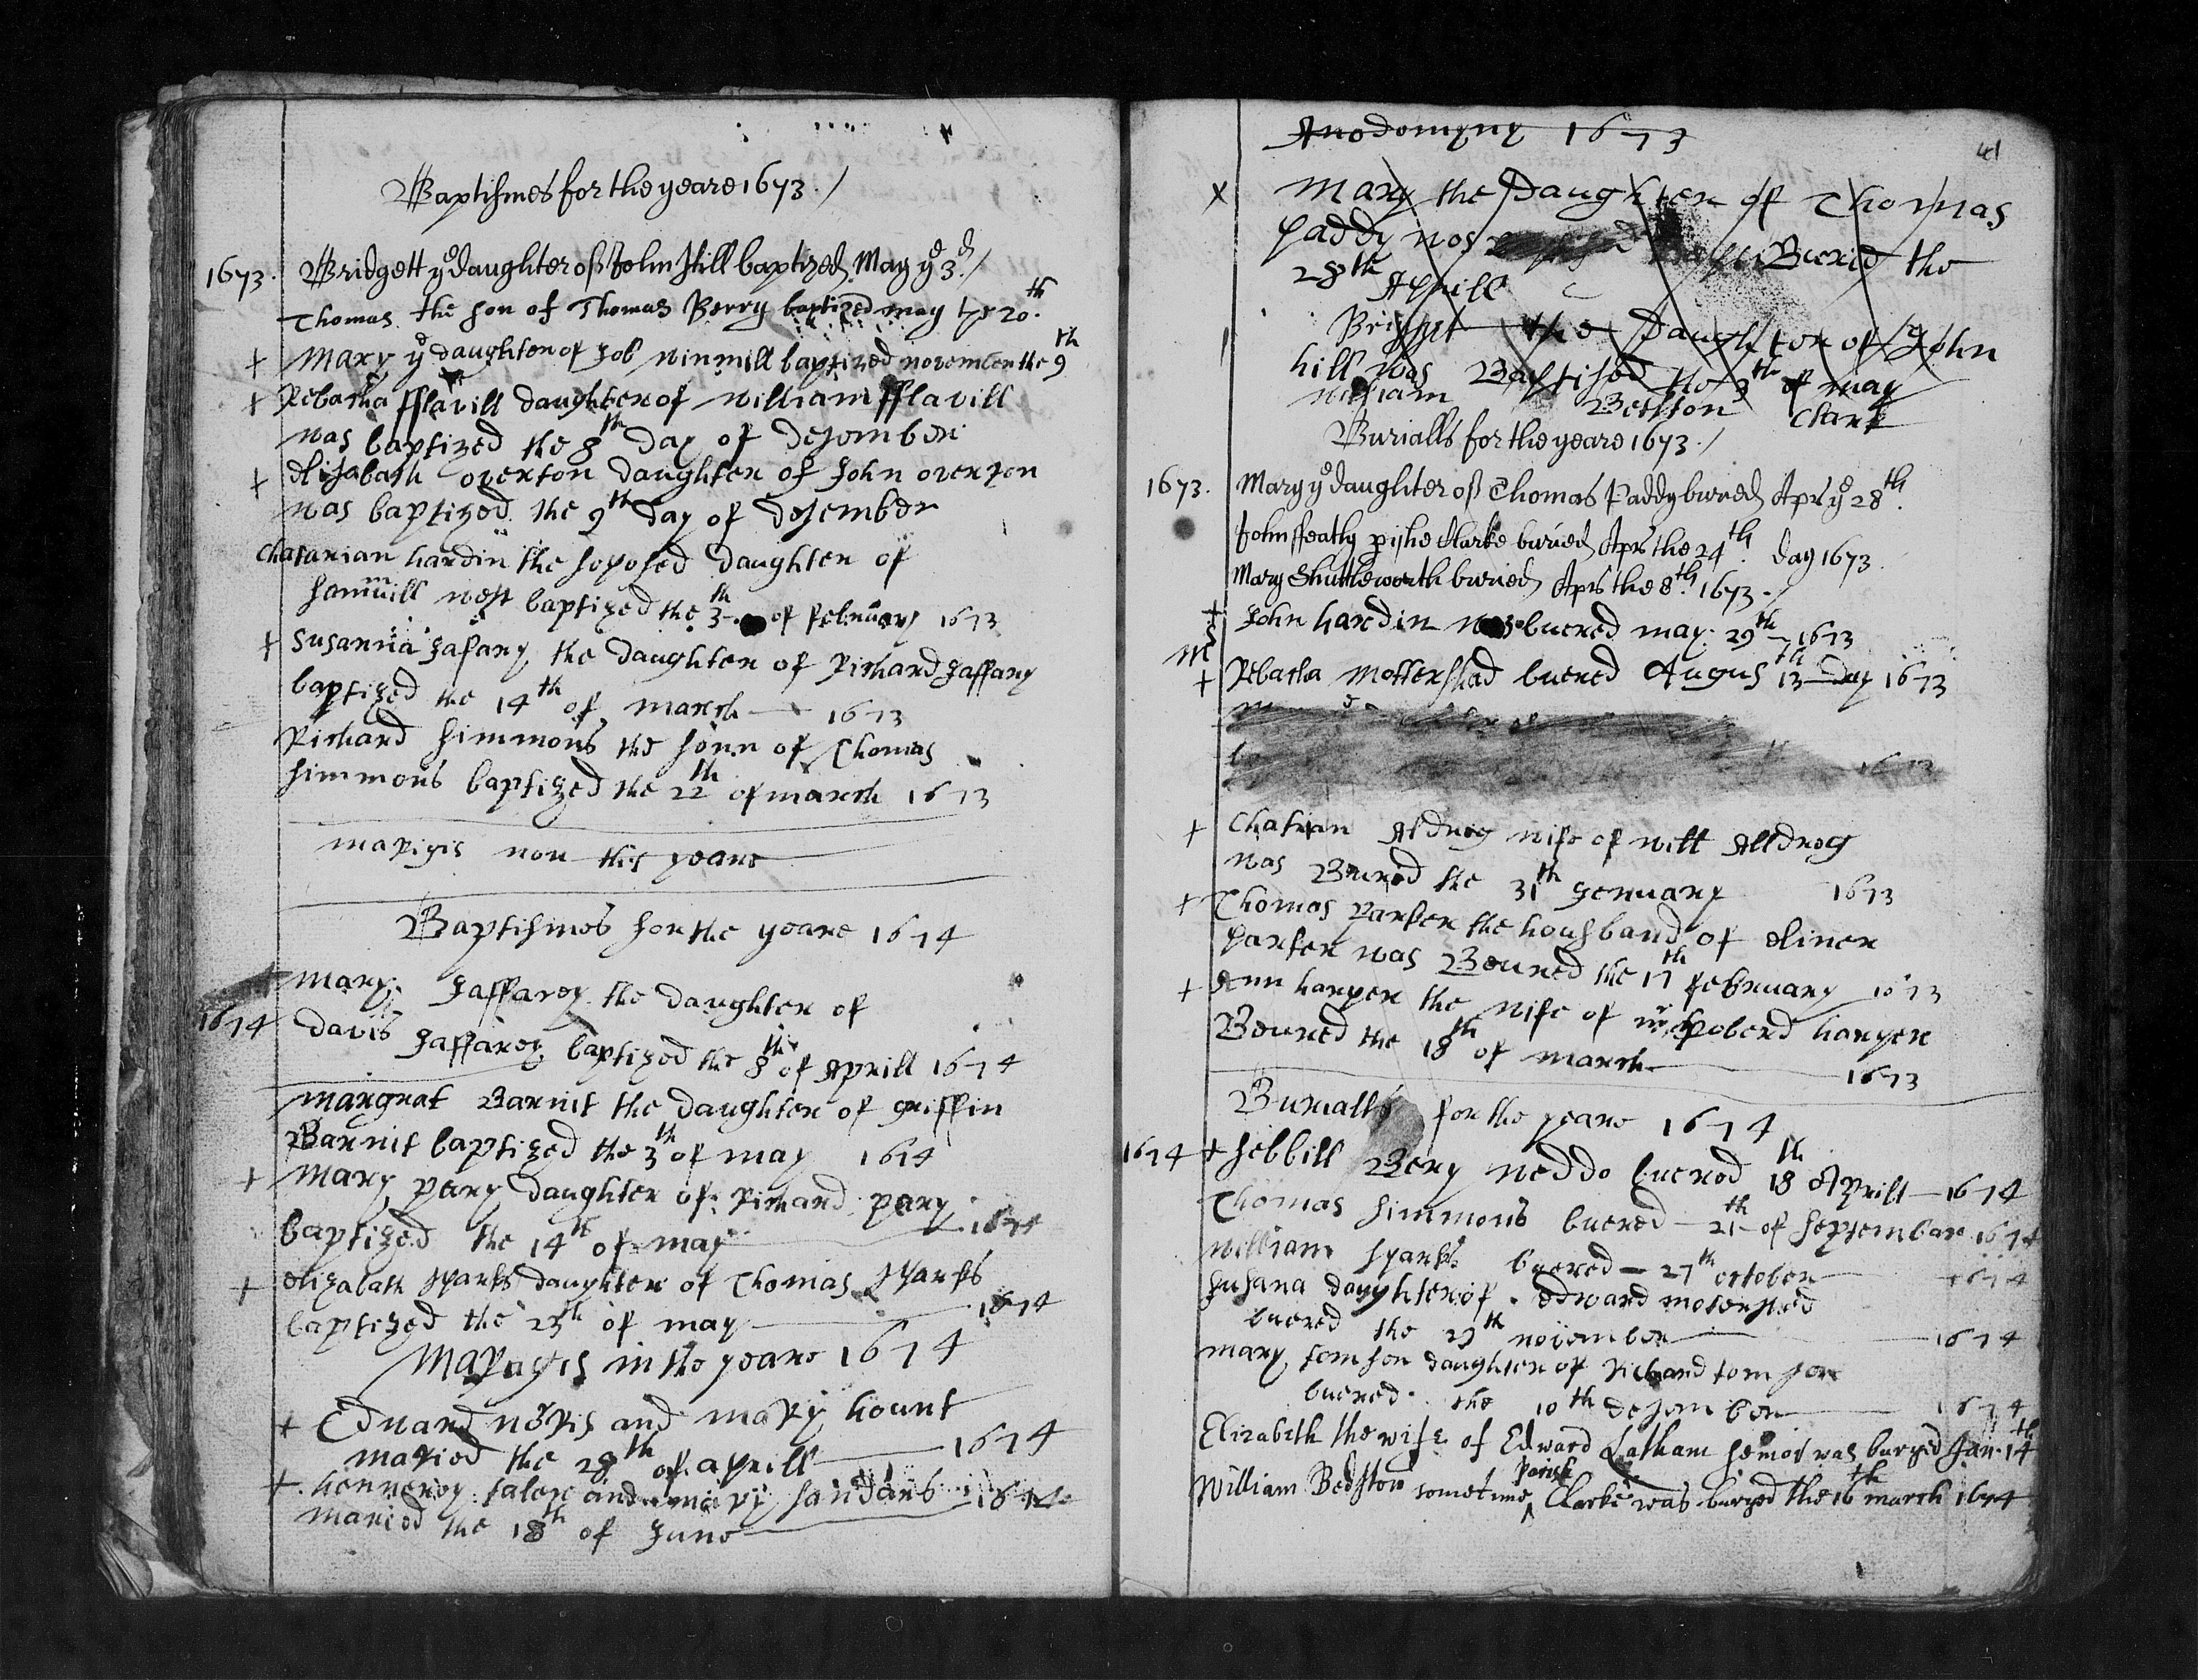 Baptismes for the yeare 1673 . /
1673 . Bridgett ye daughter of John Hill baptized May ye 3d . /
Thomas the son of Thomas Berry baptized may the 20th .
+ Mary ye daughter of Job winmill baptized november the 9th
+ Rebatha fflavill daughter of william fflavill
was baptized the 8th day of desember
+ elisabath overton daughter of John overton
was baptized the 9th day of desember
Chatarian hardin the soposed daughter of
Samuill west baptized the 3th of february 1673
+ Susanna Jafary the daughter of Richard Jaffary
baptized the 14th of march 1673
Richard Simmons the sonn of Thomas
Simmons baptized the 22th of march 1673
marigis non this yeare
Baptismes for the yeare 1674
Mary Jaffarey the daughter of
1674 Davis Jaffarey baptized the 8th of Aprill 1674
Margrat Barnit the daughter of griffin
Barnit baptized the 3th of may 1674
+ Mary pery daughter of Richard pery
baptized the 14th of may 1674
+ elizabath sparks daughter of Thomas sparks
baptized the 25th of may 1674
Maragis in the yeare 1674
+ Edward noris and mary hount
maried the 28th of aprill 1674
+ hennerey taler and mary sandars 1674
maried the 18th of June
Anodomyny 1673
41
x Mary the Daughter of Thomas
paddy was Buried the
28th Aprill
Briget the Daughter of John
hill was Baptised the 3th of may
william Betston Clark
Burialls for the yeare 1673 . /
1673 . Mary ye daughter of Thomas Paddy buried Apr ye 28th .
John ffeatly pishe Clarke buried Apr the 24th day 1673
Mary Shuttleworth buried Apr the 8th . 1673 . /
+ John hardin was buered may 29th 1673
M
+ Rebatha mottershad buered Augus 13th Day 1673
1673
+ Chatran Aldreg wife of will Alldreg
was Buried the 31th Jenuary 1673
+ Thomas Parker the housband of eliner
parker was Beured the 17th february 1673
+ Ann harper the wife of Roberd harper
Beured the 18th of march 1673
Burialls for the yeare 1674
1674 + Sebbill Bery weddo buered 18th Aprill 1674
Thomas Simmons buered 21th of september 1674
william sparks buered 27th october 1674
Susana daughter of edward motershed
buered the 27th november 1674
mary tomson daughter of Richard tomson
buered the 10th desember 1674
Elizabeth the wife of Edward Latham senior was buryed Jan . 14th
William Bedston sometime parish Clarke was buryed the 16th march 1674